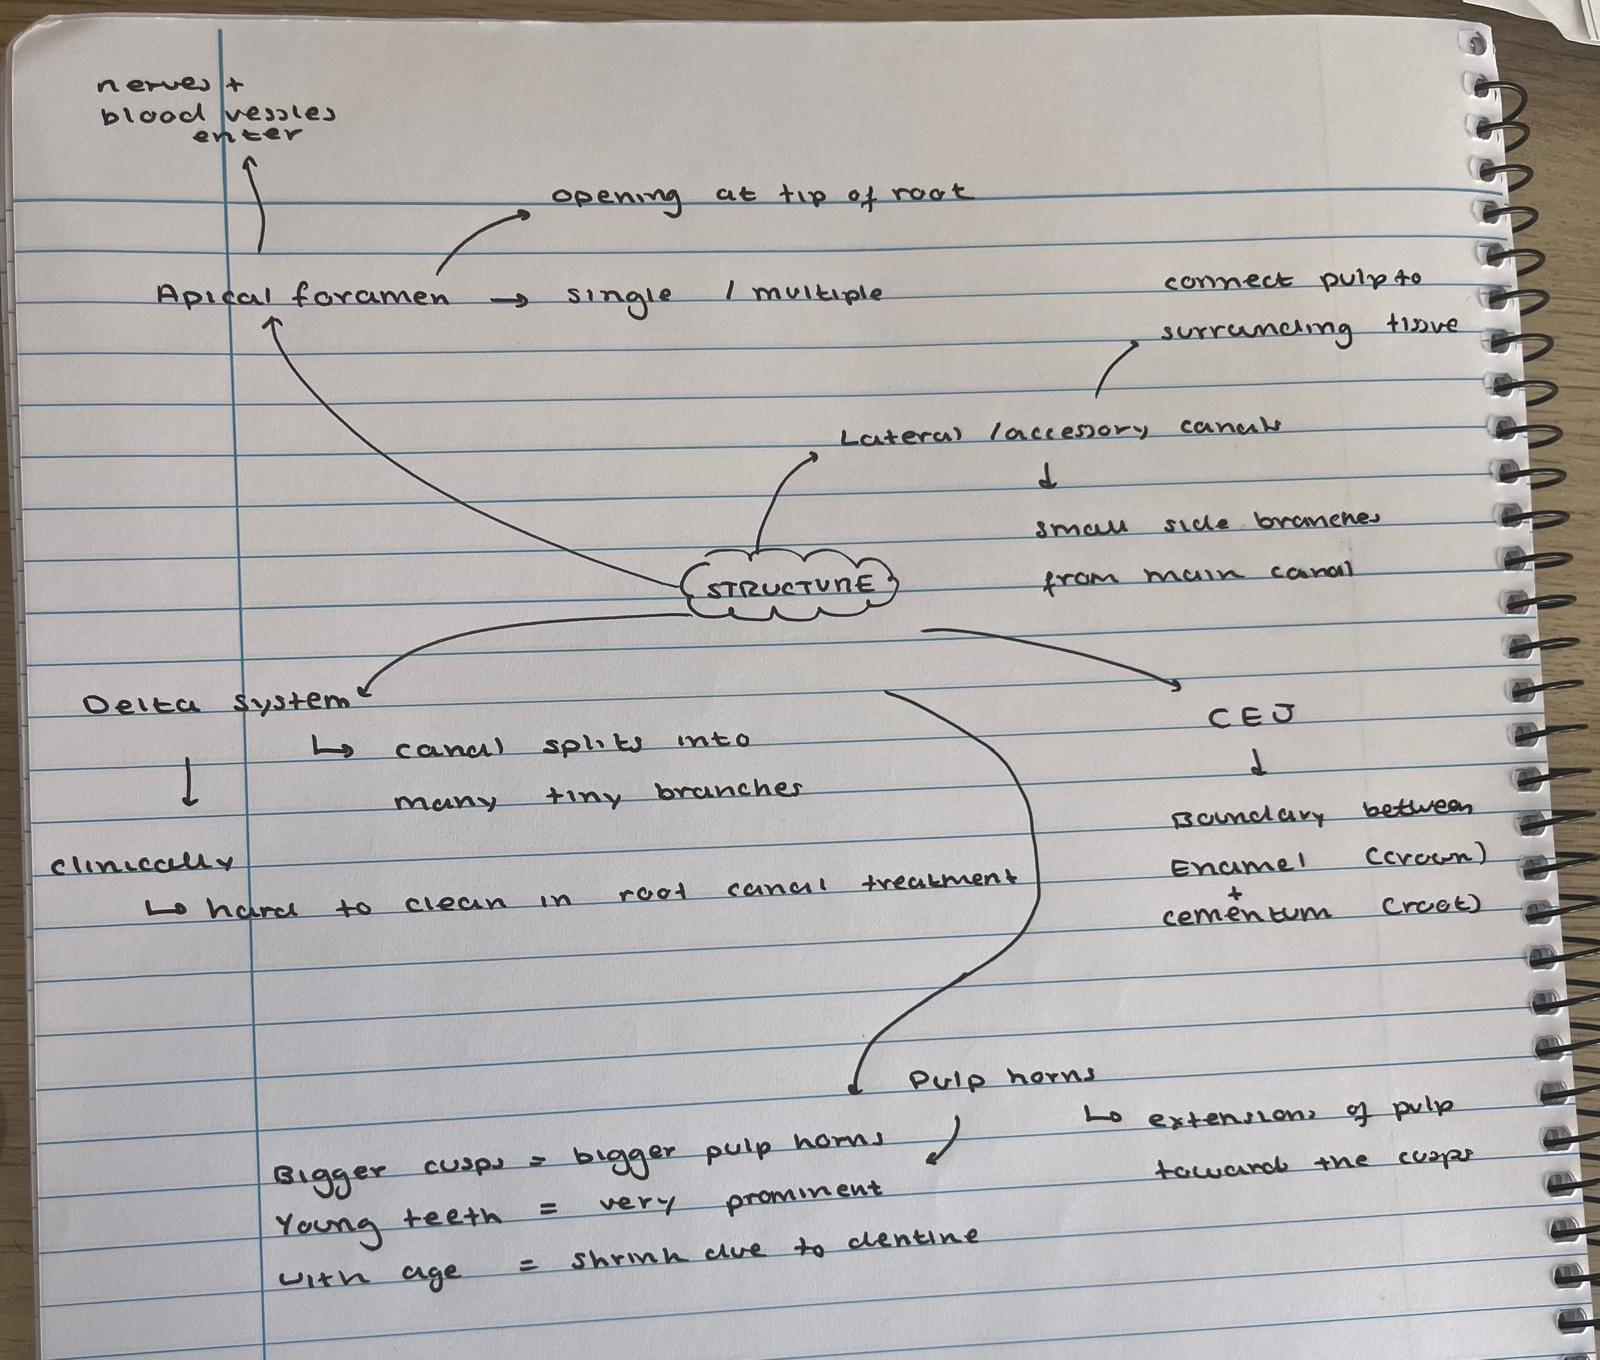 nerves +
blood vessles
enter
opening at tip of root
Apical foramen → single / multiple
connect pulp to
surrunding tissue
Lateral /accessory canals
↓
small side branches
from main canal
STRUCTURE
Delta system
↳ canal splits into
many tiny branches
↓
clinically
↳ hard to clean in root canal treatment
CEJ
↓
Boundary between
Enamel (crown)
+
cementum (root)
Pulp horns
↳ extensions of pulp
towards the cusps
Bigger cusps = bigger pulp horns
Young teeth = very prominent
with age = shrink due to dentine